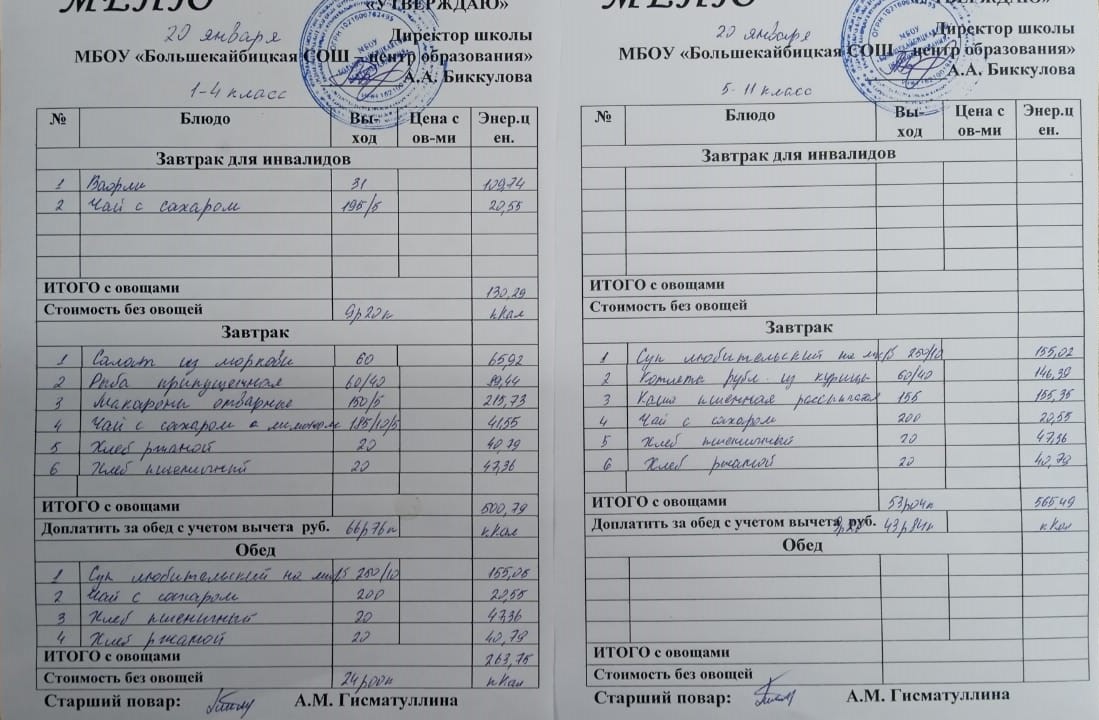 МЕНЮ
«УТВЕРЖДАЮ»
20 января
Директор школы
МБОУ «Большекайбицкая СОШ – центр образования»
А.А. Биккулова
1-4 класс
№ Блюдо Вы-ход Цена с ов-ми Энер.ц ен.
Завтрак для инвалидов
1 Вафли 31 109,74
2 Чай с сахаром 195/5 20,55
ИТОГО с овощами 130,29
Стоимость без овощей 9р20к кКал
Завтрак
1 Салат из моркови 60 65,92
2 Рыба припущенная 60/40 89,44
3 Макароны отварные 150/5 215,73
4 Чай с сахаром с лимоном 185/10/5 41,55
5 Хлеб ржаной 20 40,79
6 Хлеб пшеничный 20 47,36
ИТОГО с овощами 500,79
Доплатить за обед с учетом вычета руб. 66р76к кКал
Обед
1 Суп любительский на м/б 250/10 155,05
2 Чай с сахаром 200 20,55
3 Хлеб пшеничный 20 47,36
4 Хлеб ржаной 20 40,79
ИТОГО с овощами 263,75
Стоимость без овощей 24р00к кКал
Старший повар: А.М. Гисматуллина
МЕНЮ
«УТВЕРЖДАЮ»
20 января
Директор школы
МБОУ «Большекайбицкая СОШ – центр образования»
А.А. Биккулова
5-11 класс
№ Блюдо Вы-ход Цена с ов-ми Энер.ц ен.
Завтрак для инвалидов
ИТОГО с овощами
Стоимость без овощей
Завтрак
1 Суп любительский на м/б 250/10 155,02
2 Котлета рубл. из курицы 60/40 146,39
3 Каша пшенная рассыпчатая 155 155,35
4 Чай с сахаром 200 20,55
5 Хлеб пшеничный 20 47,36
6 Хлеб ржаной 20 40,79
ИТОГО с овощами 53р04к 565,49
Доплатить за обед с учетом вычета руб. 43р84к кКал
Обед
ИТОГО с овощами
Стоимость без овощей
Старший повар: А.М. Гисматуллина